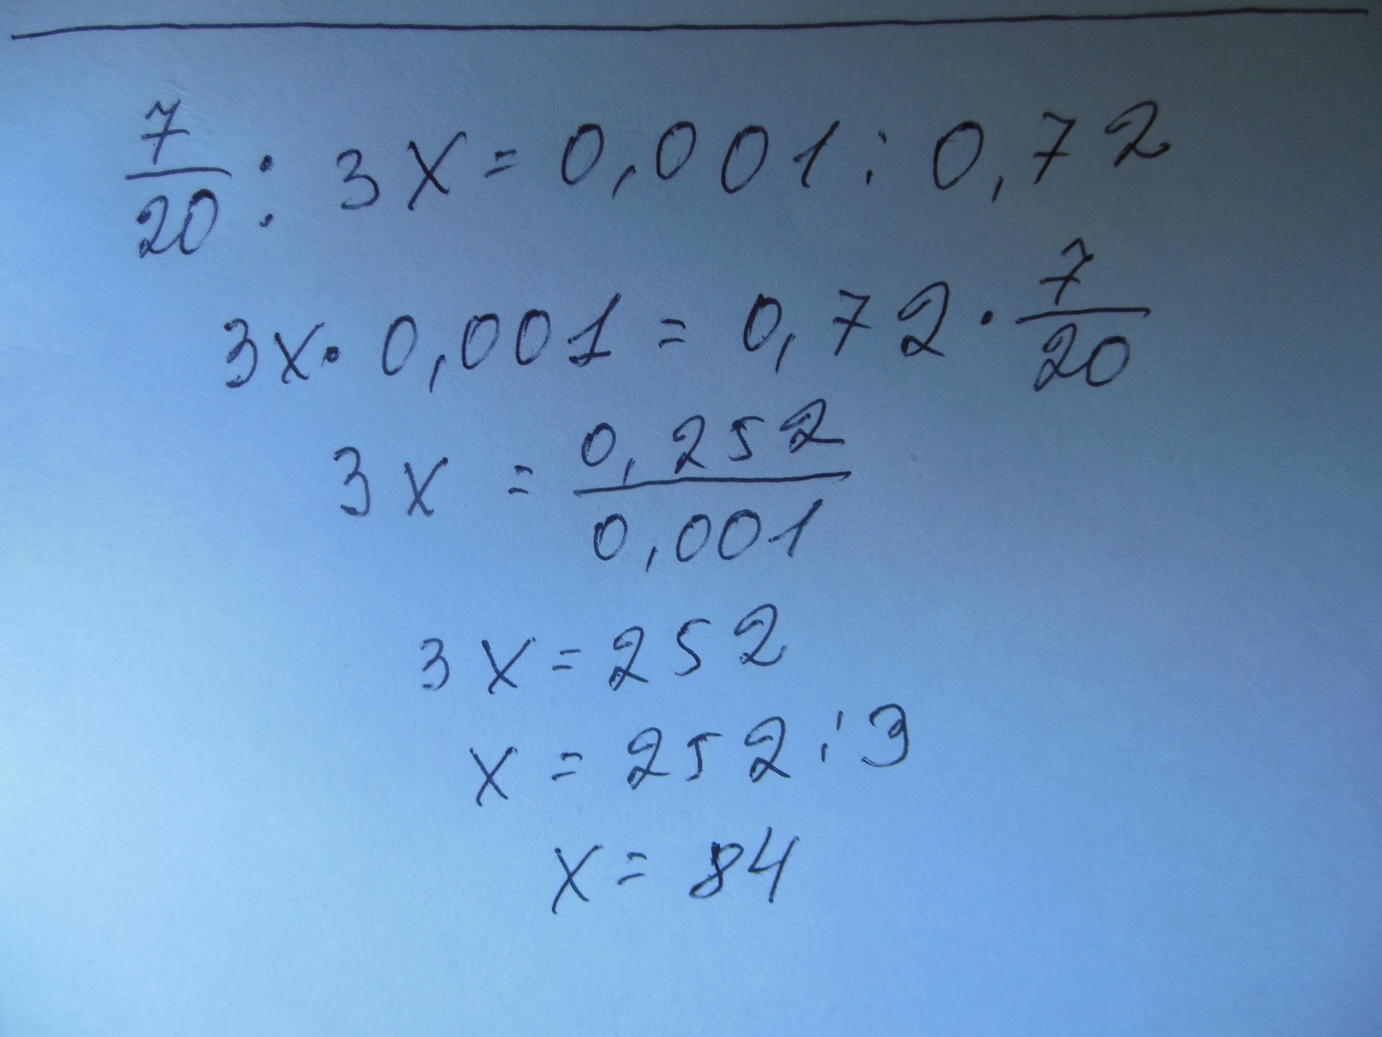 7/20 : 3x = 0,001 : 0,72
3x · 0,001 = 0,72 · 7/20
3x = 0,252/0,001
3x = 252
x = 252 : 3
x = 84